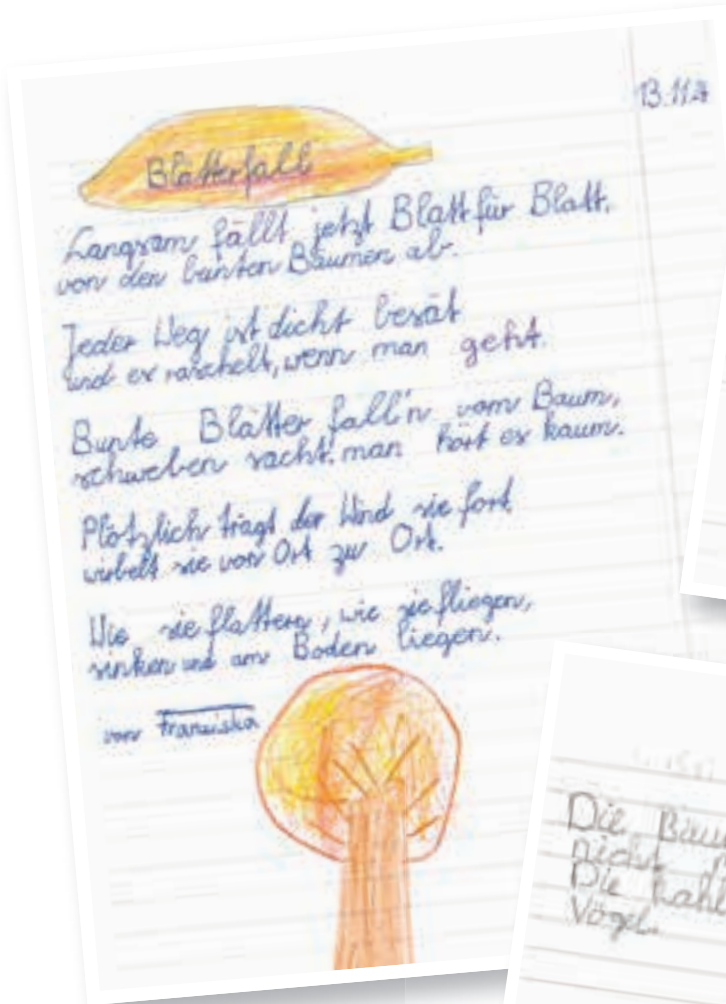 13.11.
Blätterfall
Langsam fällt jetzt Blatt für Blatt,
von den bunten Bäumen ab.
Jeder Weg ist dicht besät
und es raschelt, wenn man geht.
Bunte Blätter fall'n vom Baum,
schweben sacht. man hört es kaum.
Plötzlich trägt der Wind sie fort
wirbelt sie von Ort zu Ort.
Wie sie flattern, wie sie fliegen,
sinken und am Boden liegen.
von Franziska
Die
nicht
Die
Vögel.